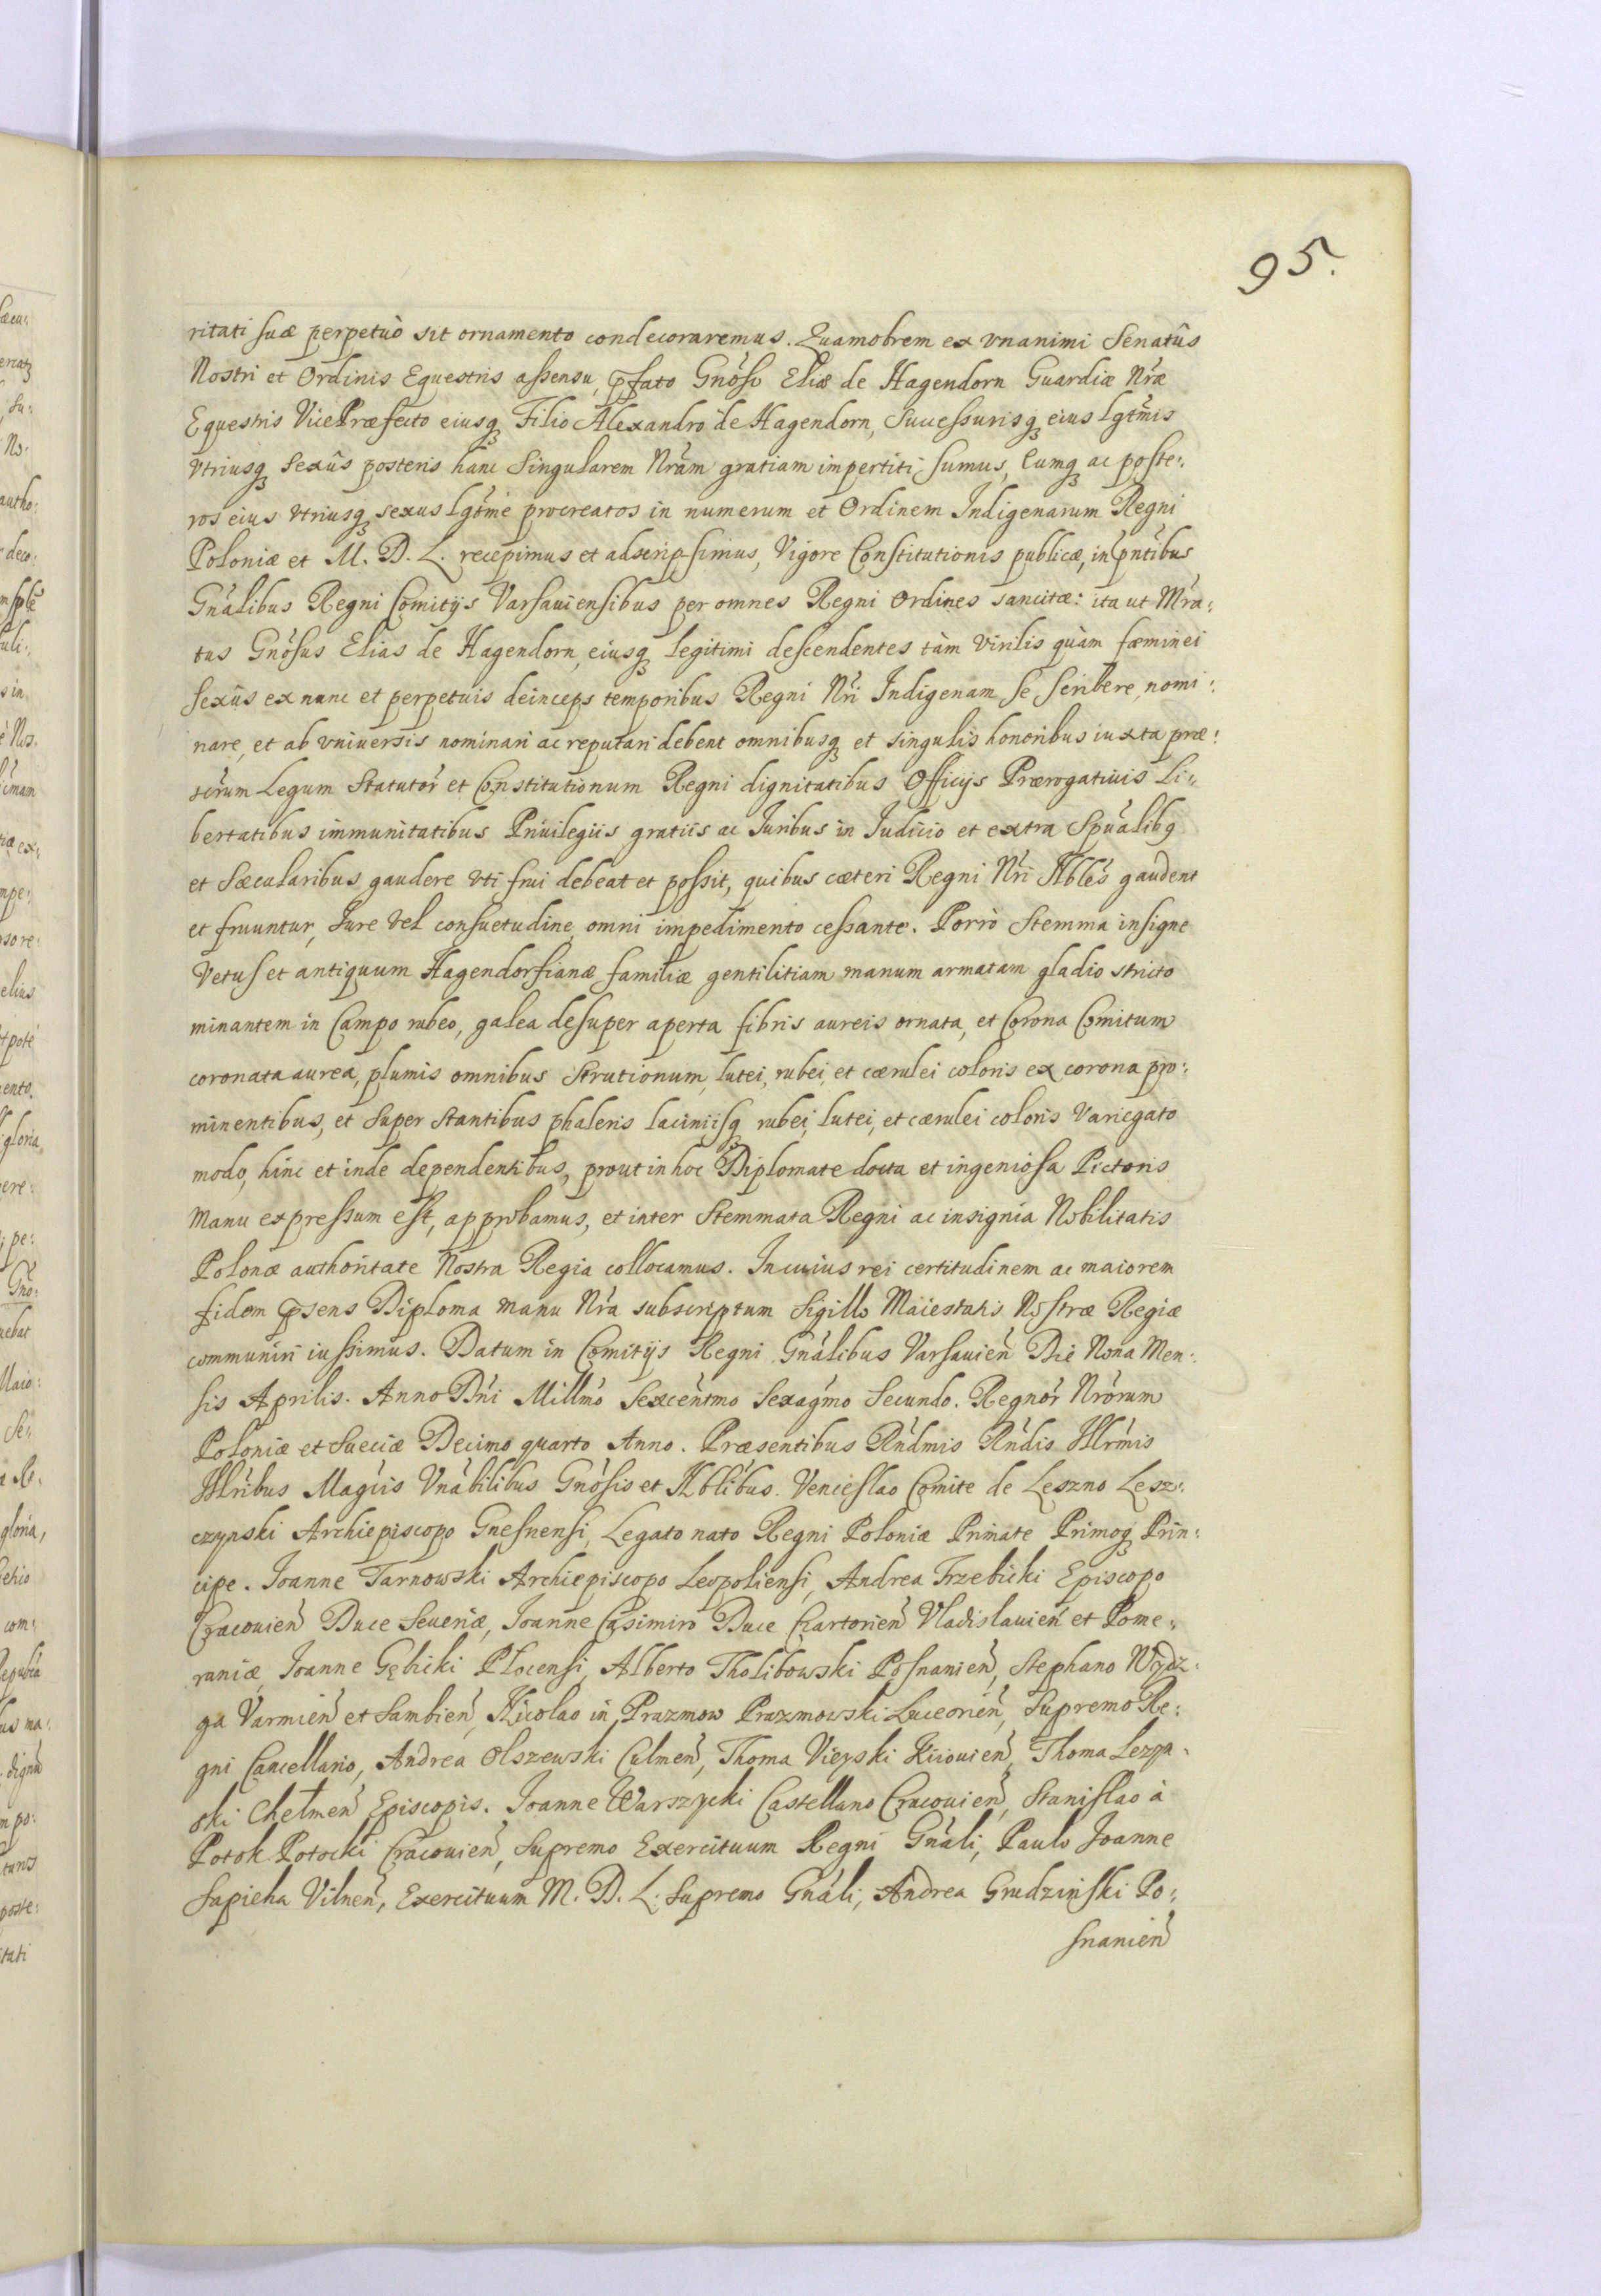 95.
ritati suæ perpetuò sit ornamento condecoraremus. Quamobrem ex vnanimi Senatûs
Nostri et Ordinis Equestris assensu, pfato Gnoso Eliæ de Hagendorn Guardiæ Nræ
Equestris VicePræfecto eiusq Filio Alexandro de Hagendorn, Successurisq eius lgtmis
vtriusq Sexûs posteris hanc Singularem Nram gratiam impertiti sumus, Eumq ac poste:
ros eius vtriusq sexus lgtme procreatos in numerum et Ordinem Indigenarum Regni
Poloniæ et M. D. L. recepimus et adscripsimus, Vigore Constitutionis publicæ, in pntibus
Gnalibus Regni Comitijs Varsauiensibus per omnes Regni Ordines sancitæ: ita ut Mra:
tus Gnosus Elias de Hagendorn, eiusq legitimi descendentes tàm virilis quàm fæminei
Sexûs ex nunc et perpetuis deinceps temporibus Regni Nri Indigenam se scribere, nomi:
nare, et ab vniuersis nominari ac reputari debent omnibusq et singulis honoribus iuxta præ:
scrum Legum Statutor et Constitutionum Regni dignitatibus Officijs Prærogatiuis Li:
bertatibus immunitatibus Priuilegiis gratiis ac Iuribus in Iudicio et extra Spualibq
et Sæcularibus gaudere vti frui debeat et possit, quibus cæteri Regni Nri Nbles gaudent
et fruuntur, Iure vel consuetudine, omni impedimento cessante. Porrò Stemma insigne
Vetus et antiquum Hagendorfianæ familiæ gentilitiam manum armatam gladio stricto
minantem in Campo rubeo, galea desuper aperta fibris aureis ornata, et Corona Comitum
coronata aurea, plumis omnibus Strutionum, lutei, rubei, et cærulei coloris ex corona pro:
minentibus, et super stantibus phaleris laciniisq rubei, lutei, et cærulei coloris variegato
modo, hinc et inde dependentibus, prout in hoc Diplomate docta et ingeniosa Pictoris
manu expressum est, approbamus, et inter Stemmata Regni ac insignia Nobilitatis
Polonæ authoritate Nostra Regia collocamus. In cuius rei certitudinem ac maiorem
fidem psens Diploma manu Nra subscriptum Sigillo Maiestatis Nostræ Regiæ
communiri iussimus. Datum in Comitijs Regni Gnalibus Varsauien Die Nona Men:
sis Aprilis. Anno Dni Millmo Sexcentmo Sexagmo Secundo. Regnor Nrorum
Poloniæ et Sueciæ Decimo quarto Anno. Præsentibus Rndmis Rndis Illrmis
Illribus Magcis Vnabilibus Gnosis et Nblibus. Venceslao Comite de Leszno Lesz:
czynski Archiepiscopo Gnesnensi, Legato nato Regni Poloniæ Primate Primoq Prin:
cipe. Ioanne Tarnowski Archiepiscopo Leopoliensi, Andrea Trzebicki Episcopo
Cracouien Duce Seueriæ, Ioanne Casimiro Duce Czartorien Vladislauien et Pome:
raniæ, Ioanne Gębicki Plocensi, Alberto Tholibowski Posnanien, Stephano Wydz:
ga Varmien et Sambien, Nicolao in Prazmow Prazmowski Luceorien, Supremo Re:
gni Cancellario, Andrea Olszewski Culmen, Thoma Vieyski Kiiouien, Thoma Lezen:
ski Chelmen Episcopis. Ioanne Warszycki Castellano Cracouien, Stanislao à
Potok Potocki Cracouien, Supremo Exercituum Regni Gnali, Paulo Ioanne
Sapieha Vilnen, Exercituum M. D. L. Supremo Gnali, Andrea Grudzinski Po:
snanien